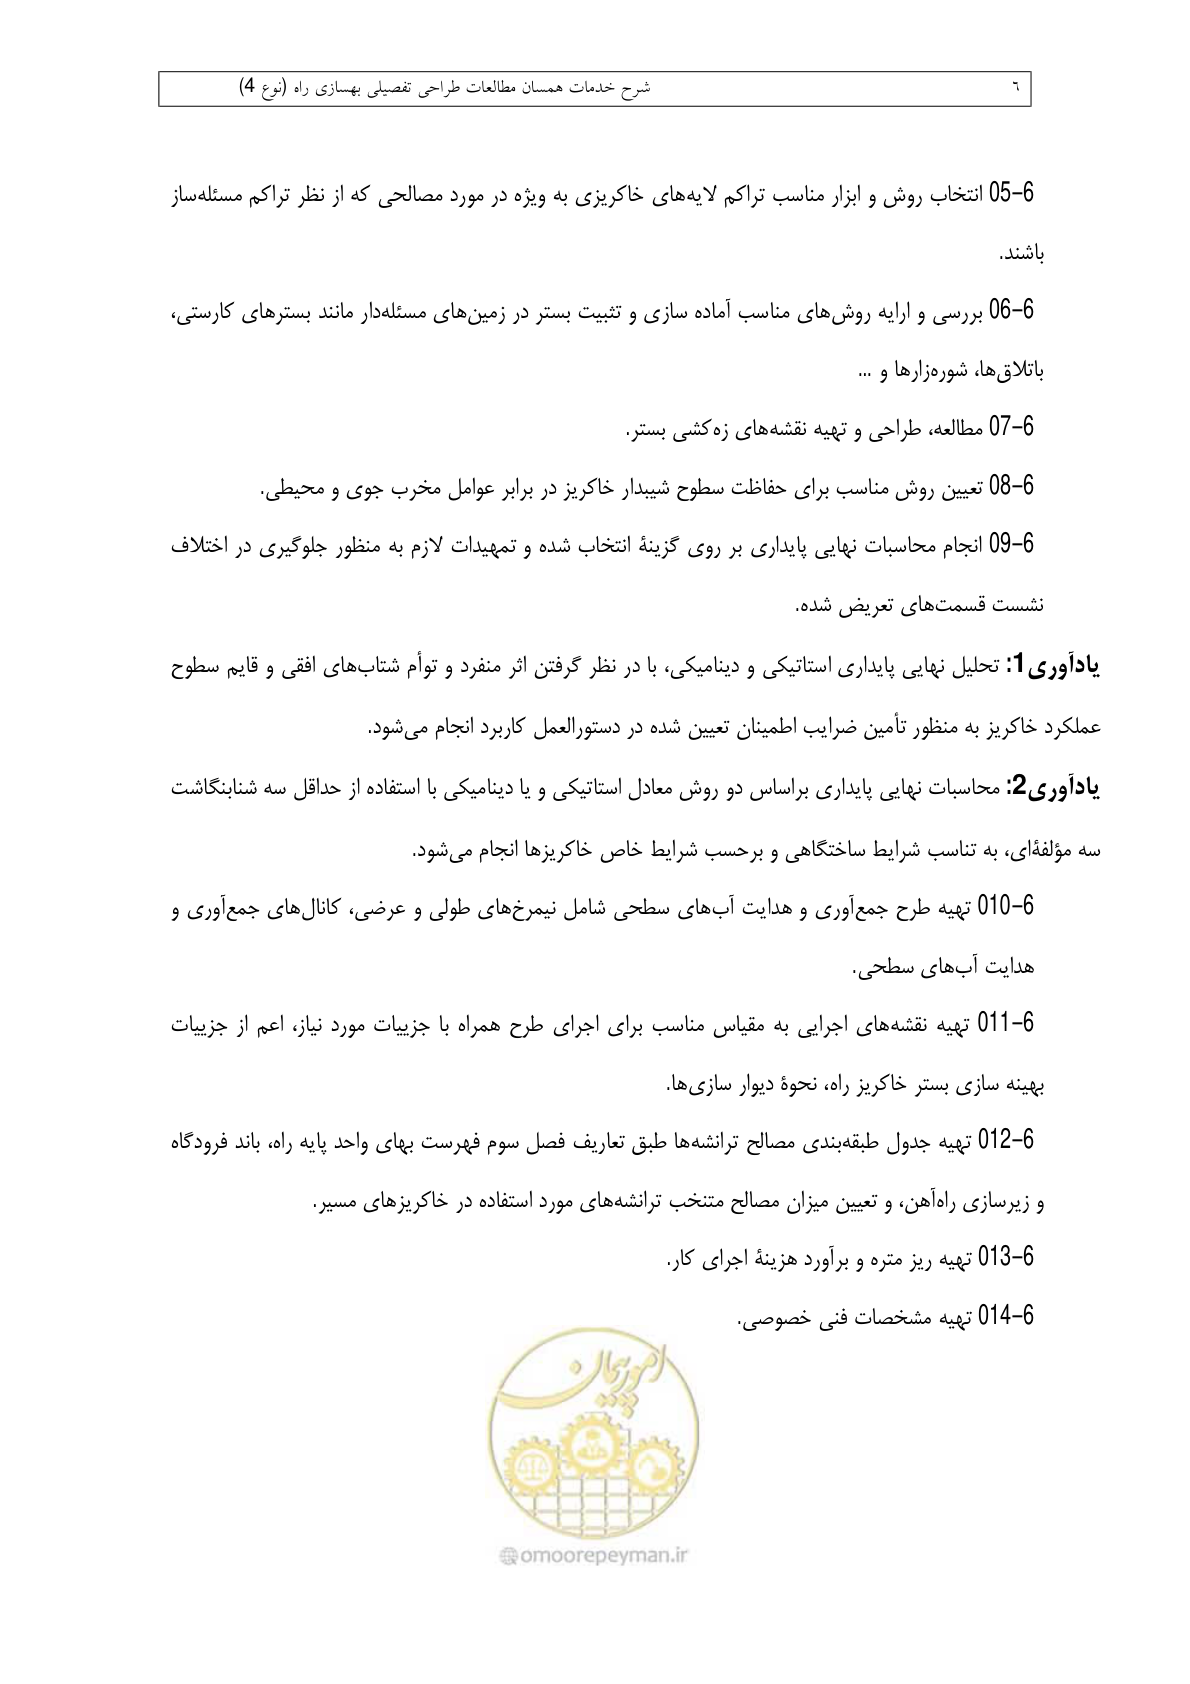 ۶ شرح خدمات همسان مطالعات طراحی تفصیلی بهسازی راه (نوع 4)
6–05 انتخاب روش و ابزار مناسب تراکم لایه‌های خاکریزی به ویژه در مورد مصالحی که از نظر تراکم مسئله‌ساز
باشند.
6–06 بررسی و ارایه روش‌های مناسب آماده سازی و تثبیت بستر در زمین‌های مسئله‌دار مانند بسترهای کارستی،
باتلاق‌ها، شوره‌زارها و ...
6–07 مطالعه، طراحی و تهیه نقشه‌های زه‌کشی بستر.
6–08 تعیین روش مناسب برای حفاظت سطوح شیبدار خاکریز در برابر عوامل مخرب جوی و محیطی.
6–09 انجام محاسبات نهایی پایداری بر روی گزینهٔ انتخاب شده و تمهیدات لازم به منظور جلوگیری در اختلاف
نشست قسمت‌های تعریض شده.
یادآوری1: تحلیل نهایی پایداری استاتیکی و دینامیکی، با در نظر گرفتن اثر منفرد و توأم شتاب‌های افقی و قایم سطوح
عملکرد خاکریز به منظور تأمین ضرایب اطمینان تعیین شده در دستورالعمل کاربرد انجام می‌شود.
یادآوری2: محاسبات نهایی پایداری براساس دو روش معادل استاتیکی و یا دینامیکی با استفاده از حداقل سه شنابنگاشت
سه مؤلفهٔ‌ای، به تناسب شرایط ساختگاهی و برحسب شرایط خاص خاکریزها انجام می‌شود.
6–010 تهیه طرح جمع‌آوری و هدایت آب‌های سطحی شامل نیمرخ‌های طولی و عرضی، کانال‌های جمع‌آوری و
هدایت آب‌های سطحی.
6–011 تهیه نقشه‌های اجرایی به مقیاس مناسب برای اجرای طرح همراه با جزییات مورد نیاز، اعم از جزییات
بهینه سازی بستر خاکریز راه، نحوهٔ دیوار سازی‌ها.
6–012 تهیه جدول طبقه‌بندی مصالح ترانشه‌ها طبق تعاریف فصل سوم فهرست بهای واحد پایه راه، باند فرودگاه
و زیرسازی راه‌آهن، و تعیین میزان مصالح متنخب ترانشه‌های مورد استفاده در خاکریزهای مسیر.
6–013 تهیه ریز متره و برآورد هزینهٔ اجرای کار.
6–014 تهیه مشخصات فنی خصوصی.
امور پیمان
@omoorepeyman.ir